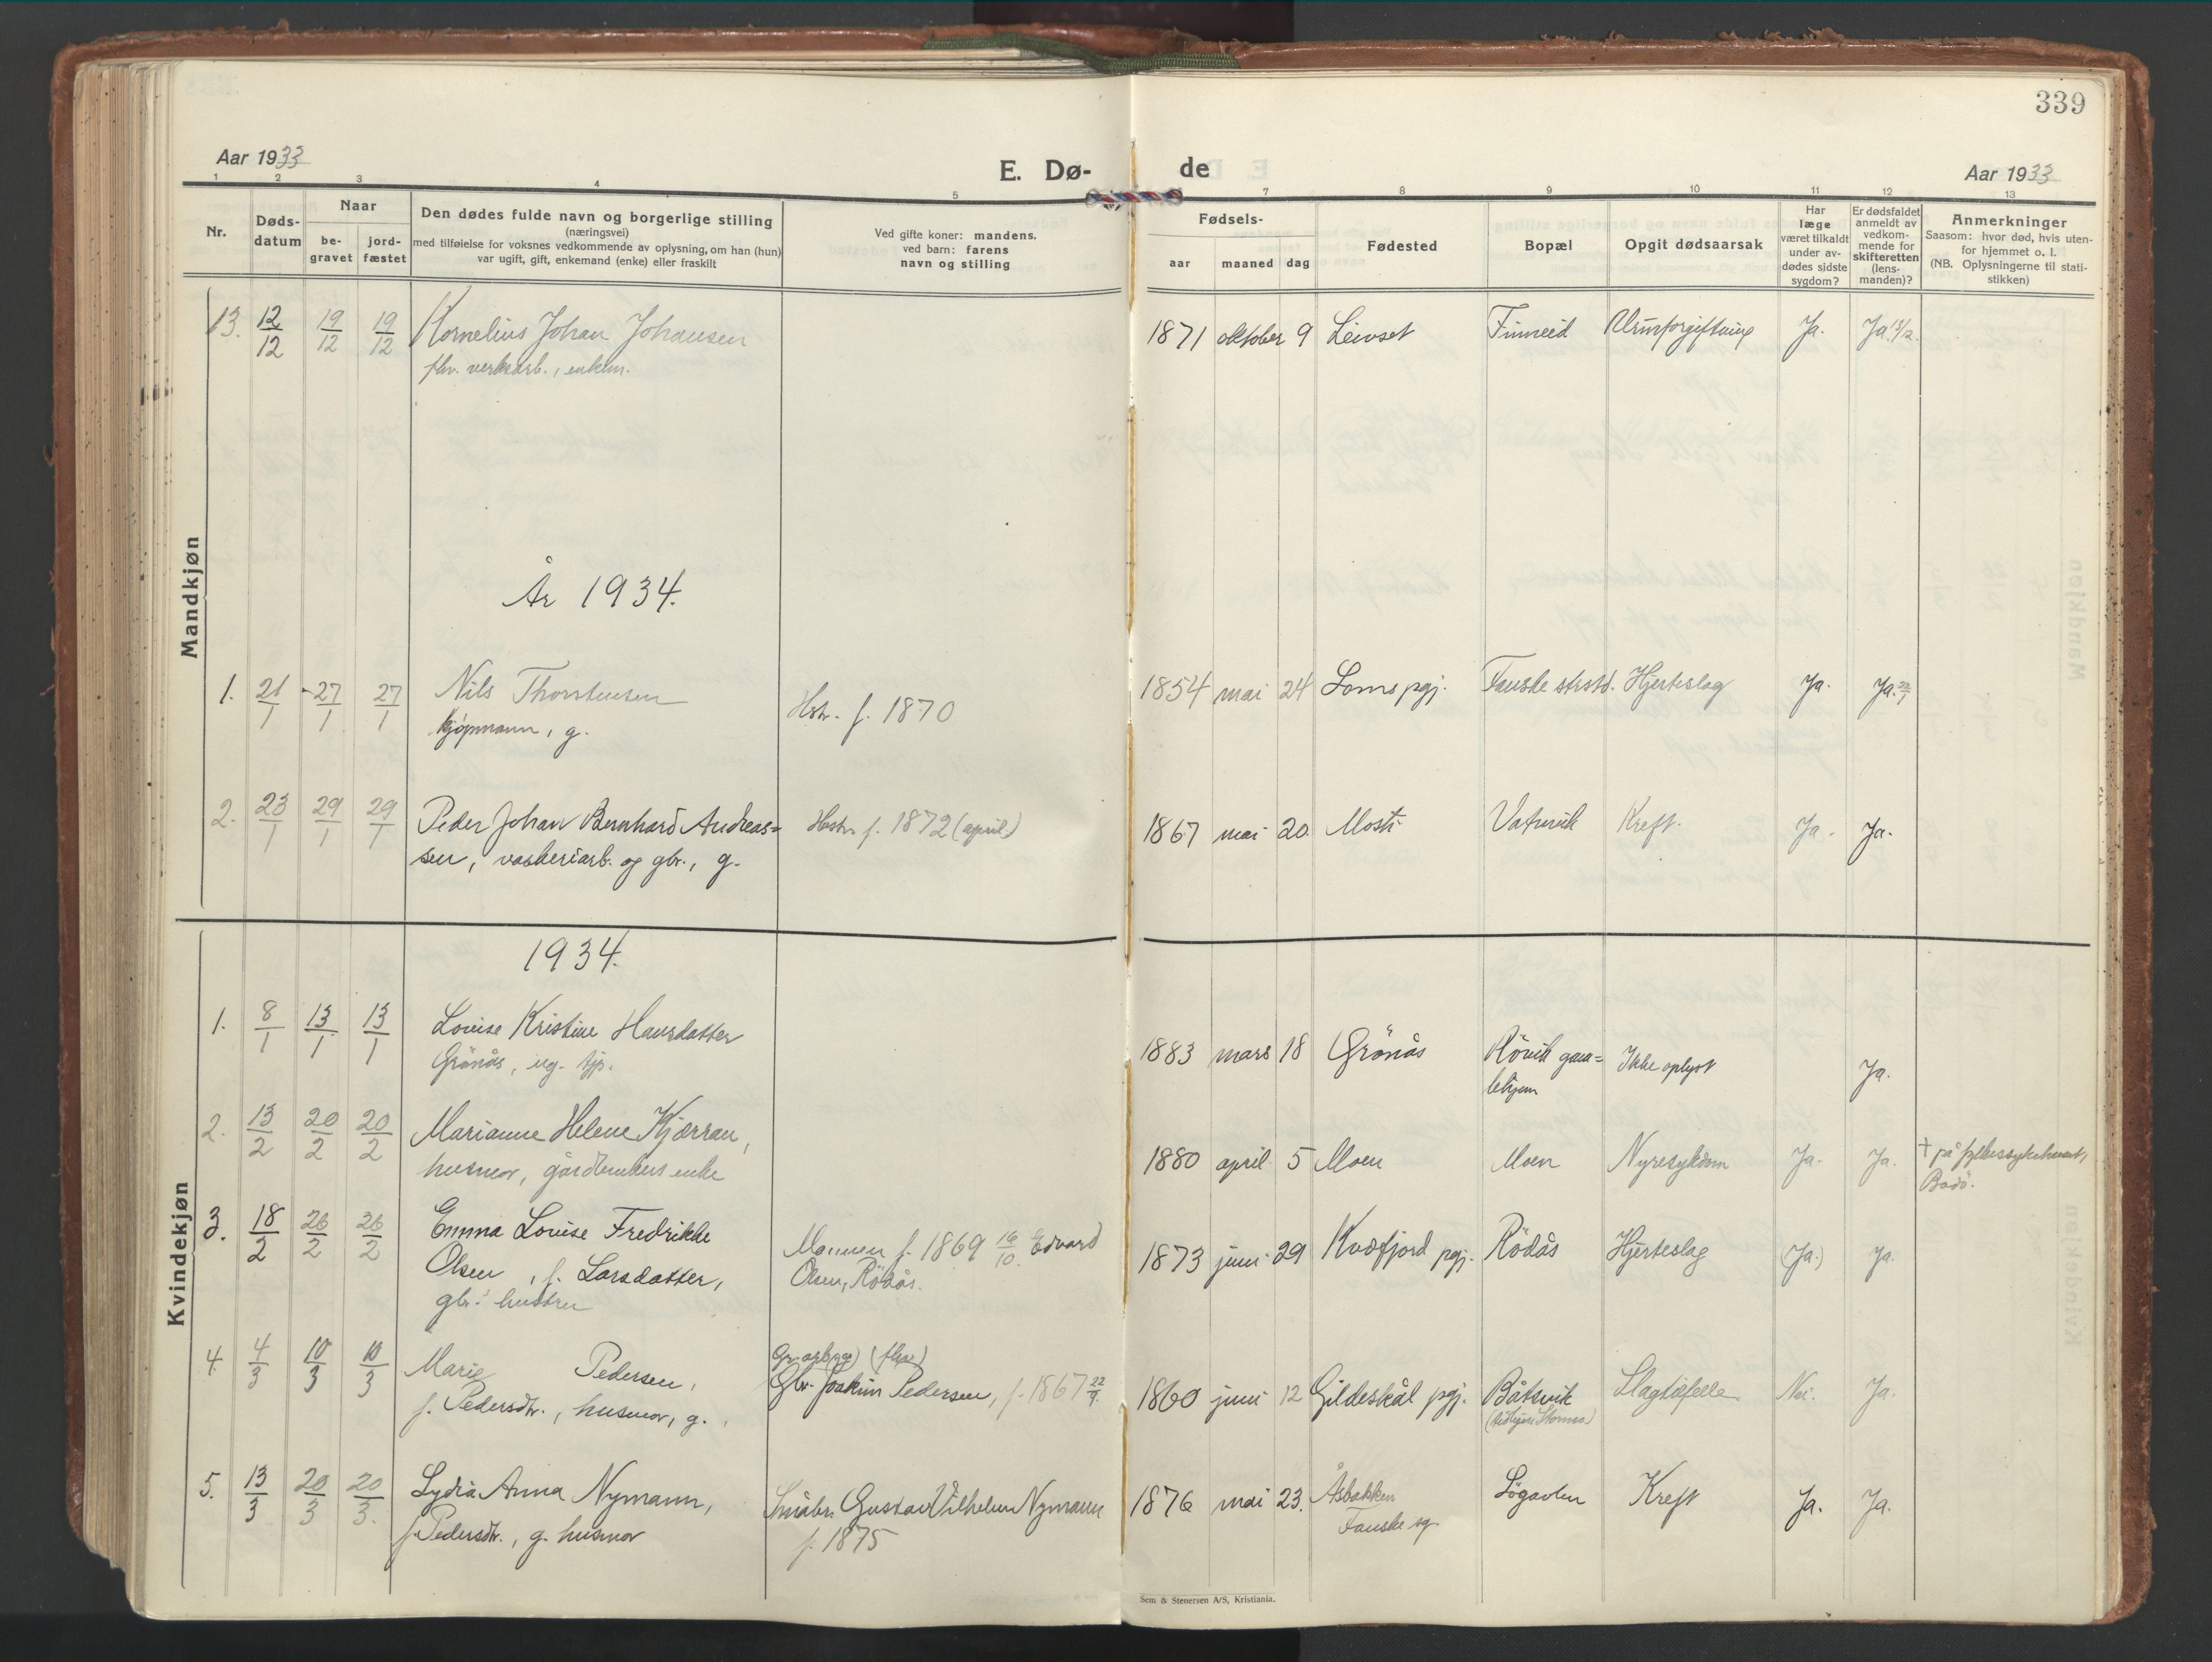 339
Aar 1933
E. Dø-
de
Aar 1933
1 2 3 4 5 7 8 9 10 11 12 13
Nr.
Døds-
datum
Naar
be-
gravet
jord-
fæstet
Den dødes fulde navn og borgerlige stilling
(næringsvei)
med tilføielse for voksnes vedkommende av oplysning, om han (hun)
var ugift, gift, enkemand (enke) eller fraskilt
Ved gifte koner: mandens.
ved barn: farens
navn og stilling
Fødsels-
aar maaned dag
Fødested
Bopæl
Opgit dødsaarsak
Har
læge
været tilkaldt
under av-
dødes sidste
sygdom?
Er dødsfaldet
anmeldt av
vedkom-
mende for
skifteretten
(lens-
manden)?
Anmerkninger
Saasom: hvor død, hvis uten-
for hjemmet o. l.
(NB. Oplysningerne til stati-
stikken)
Mandkjøn
13. 12/12 19/12 19/12 Kornelius Johan Johansen 1871 oktober 9 Leivset Finneid Ja. Ja 13/12.
fhv. verksarb., enkem.
År 1934.
1. 21/1 27/1 27/1 Nils Thorstensen 1854 mai 24 Loms pgj. Fauske strstd. Hjerteslag Ja. Ja. 22/1
kjøpmann, g. Hstr. f. 1870
2. 23/1 29/1 29/1 Peder Johan Bernhard Andreas= Hustr. f. 1872 (april) 1867 mai 20. Mosti Vatnvik Kreft. Ja. Ja.
sen, vaskeriarb. og gbr., g.
Kvindekjøn
1934.
1. 8/1 13/1 13/1 Louise Kristine Hansdatter 1883 mars 18 Grönås Rövik gam= Ikke oplyst Ja.
Grönås, ug. tjp. lehjem
2. 13/2 20/2 20/2 Marianne Helene Kjærran, 1880 april 5 Moen Moen Nyresykdom Ja. Ja. † på fylkessykehuset,
husmor, gårdbrukers enke Bodö.
3. 18/2 26/2 26/2 Emma Louise Fredrikke Mannen f. 1869 16/10 Edvard 1873 juni 29 Kvæfjord pgj. Rödås Hjerteslag (Ja.) Ja.
Olsen, f. Larsdatter, Olsen, Rödås.
gbr. hustru
4. 4/3 10/3 10/3 Marie Pedersen, Gbr. Joakim Pedersen, f. 1867 22/9. 1860 juni 12 Gildeskål pgj. Båtsvik Slagtilfelle Nei. Ja.
f. Pedersdtr., husmor, g.
5. 13/3 20/3 20/3. Lydia Anna Nymann, Småbr. Gustav Vilhelm Nymann 1876 mai 23. Åsbakken Løgavlen Kreft Ja. Ja.
f. Pedersdtr., g. husmor f. 1875 Fauske sg.
Sem & Stenersen A/S, Kristiania.